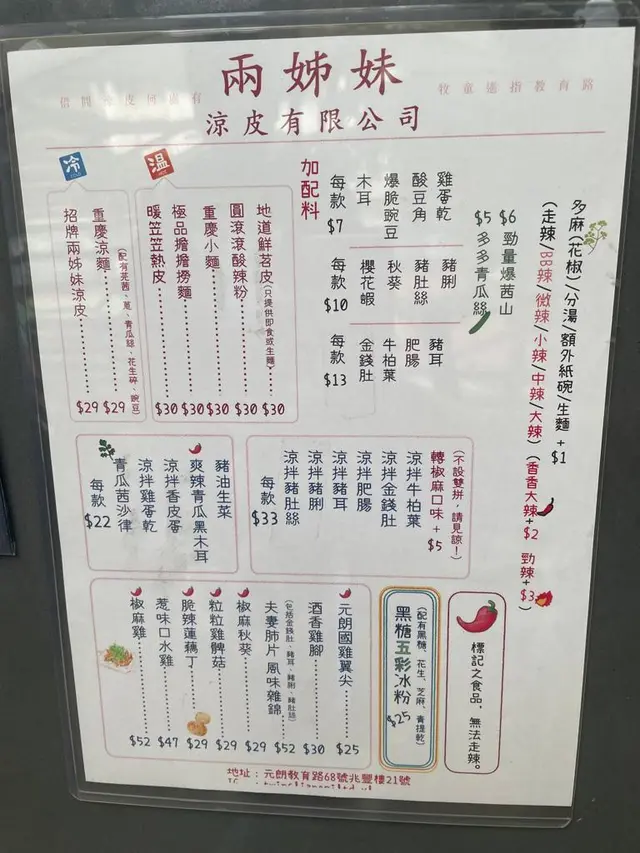 兩姊妹
涼皮有限公司
牧童遙指教育路
多麻(花椒)/分湯/額外紙碗/生麵 + $1
(走辣/BB辣/微辣/小辣/中辣/大辣)
(香香大辣 + $2 勁辣 + $3)
$6 勁量爆茜山
$5 多多青瓜絲
加配料
每款 $7
木耳
爆脆豌豆
酸豆角
雞蛋乾
每款 $10
櫻花蝦
秋葵
豬肚絲
豬脷
每款 $13
金錢肚
牛柏葉
肥腸
豬耳
溫
地道鮮苕皮(只提供即食或生麵) $30
圓滾滾酸辣粉 $30
重慶小麵 $30
極品擔擔撈麵 $30
暖笠笠熱皮 $30
冷
(配有芫茜、蔥、青瓜絲、花生碎、豌豆)
重慶涼麵 $29
招牌兩姊妹涼皮 $29
(不設雙拼,請見諒!)
轉椒麻口味 + $5
涼拌牛柏葉
涼拌金錢肚
涼拌肥腸
涼拌豬耳
涼拌豬脷
涼拌豬肚絲
每款 $33
豬油生菜
爽辣青瓜黑木耳
涼拌香皮蛋
涼拌雞蛋乾
青瓜茜沙律
每款 $22
標記之食品,無法走辣。
(配有黑糖、花生、芝麻、青提乾)
黑糖五彩冰粉
$25
元朗國雞翼尖 $25
酒香雞腳 $30
(包括金錢肚、豬耳、豬脷、豬肚絲)
夫妻肺片 風味雜錦 $52
椒麻秋葵 $29
粒粒雞髀菇 $29
脆辣蓮藕丁 $29
惹味口水雞 $47
椒麻雞 $52
地址:元朗教育路68號兆豐樓21號